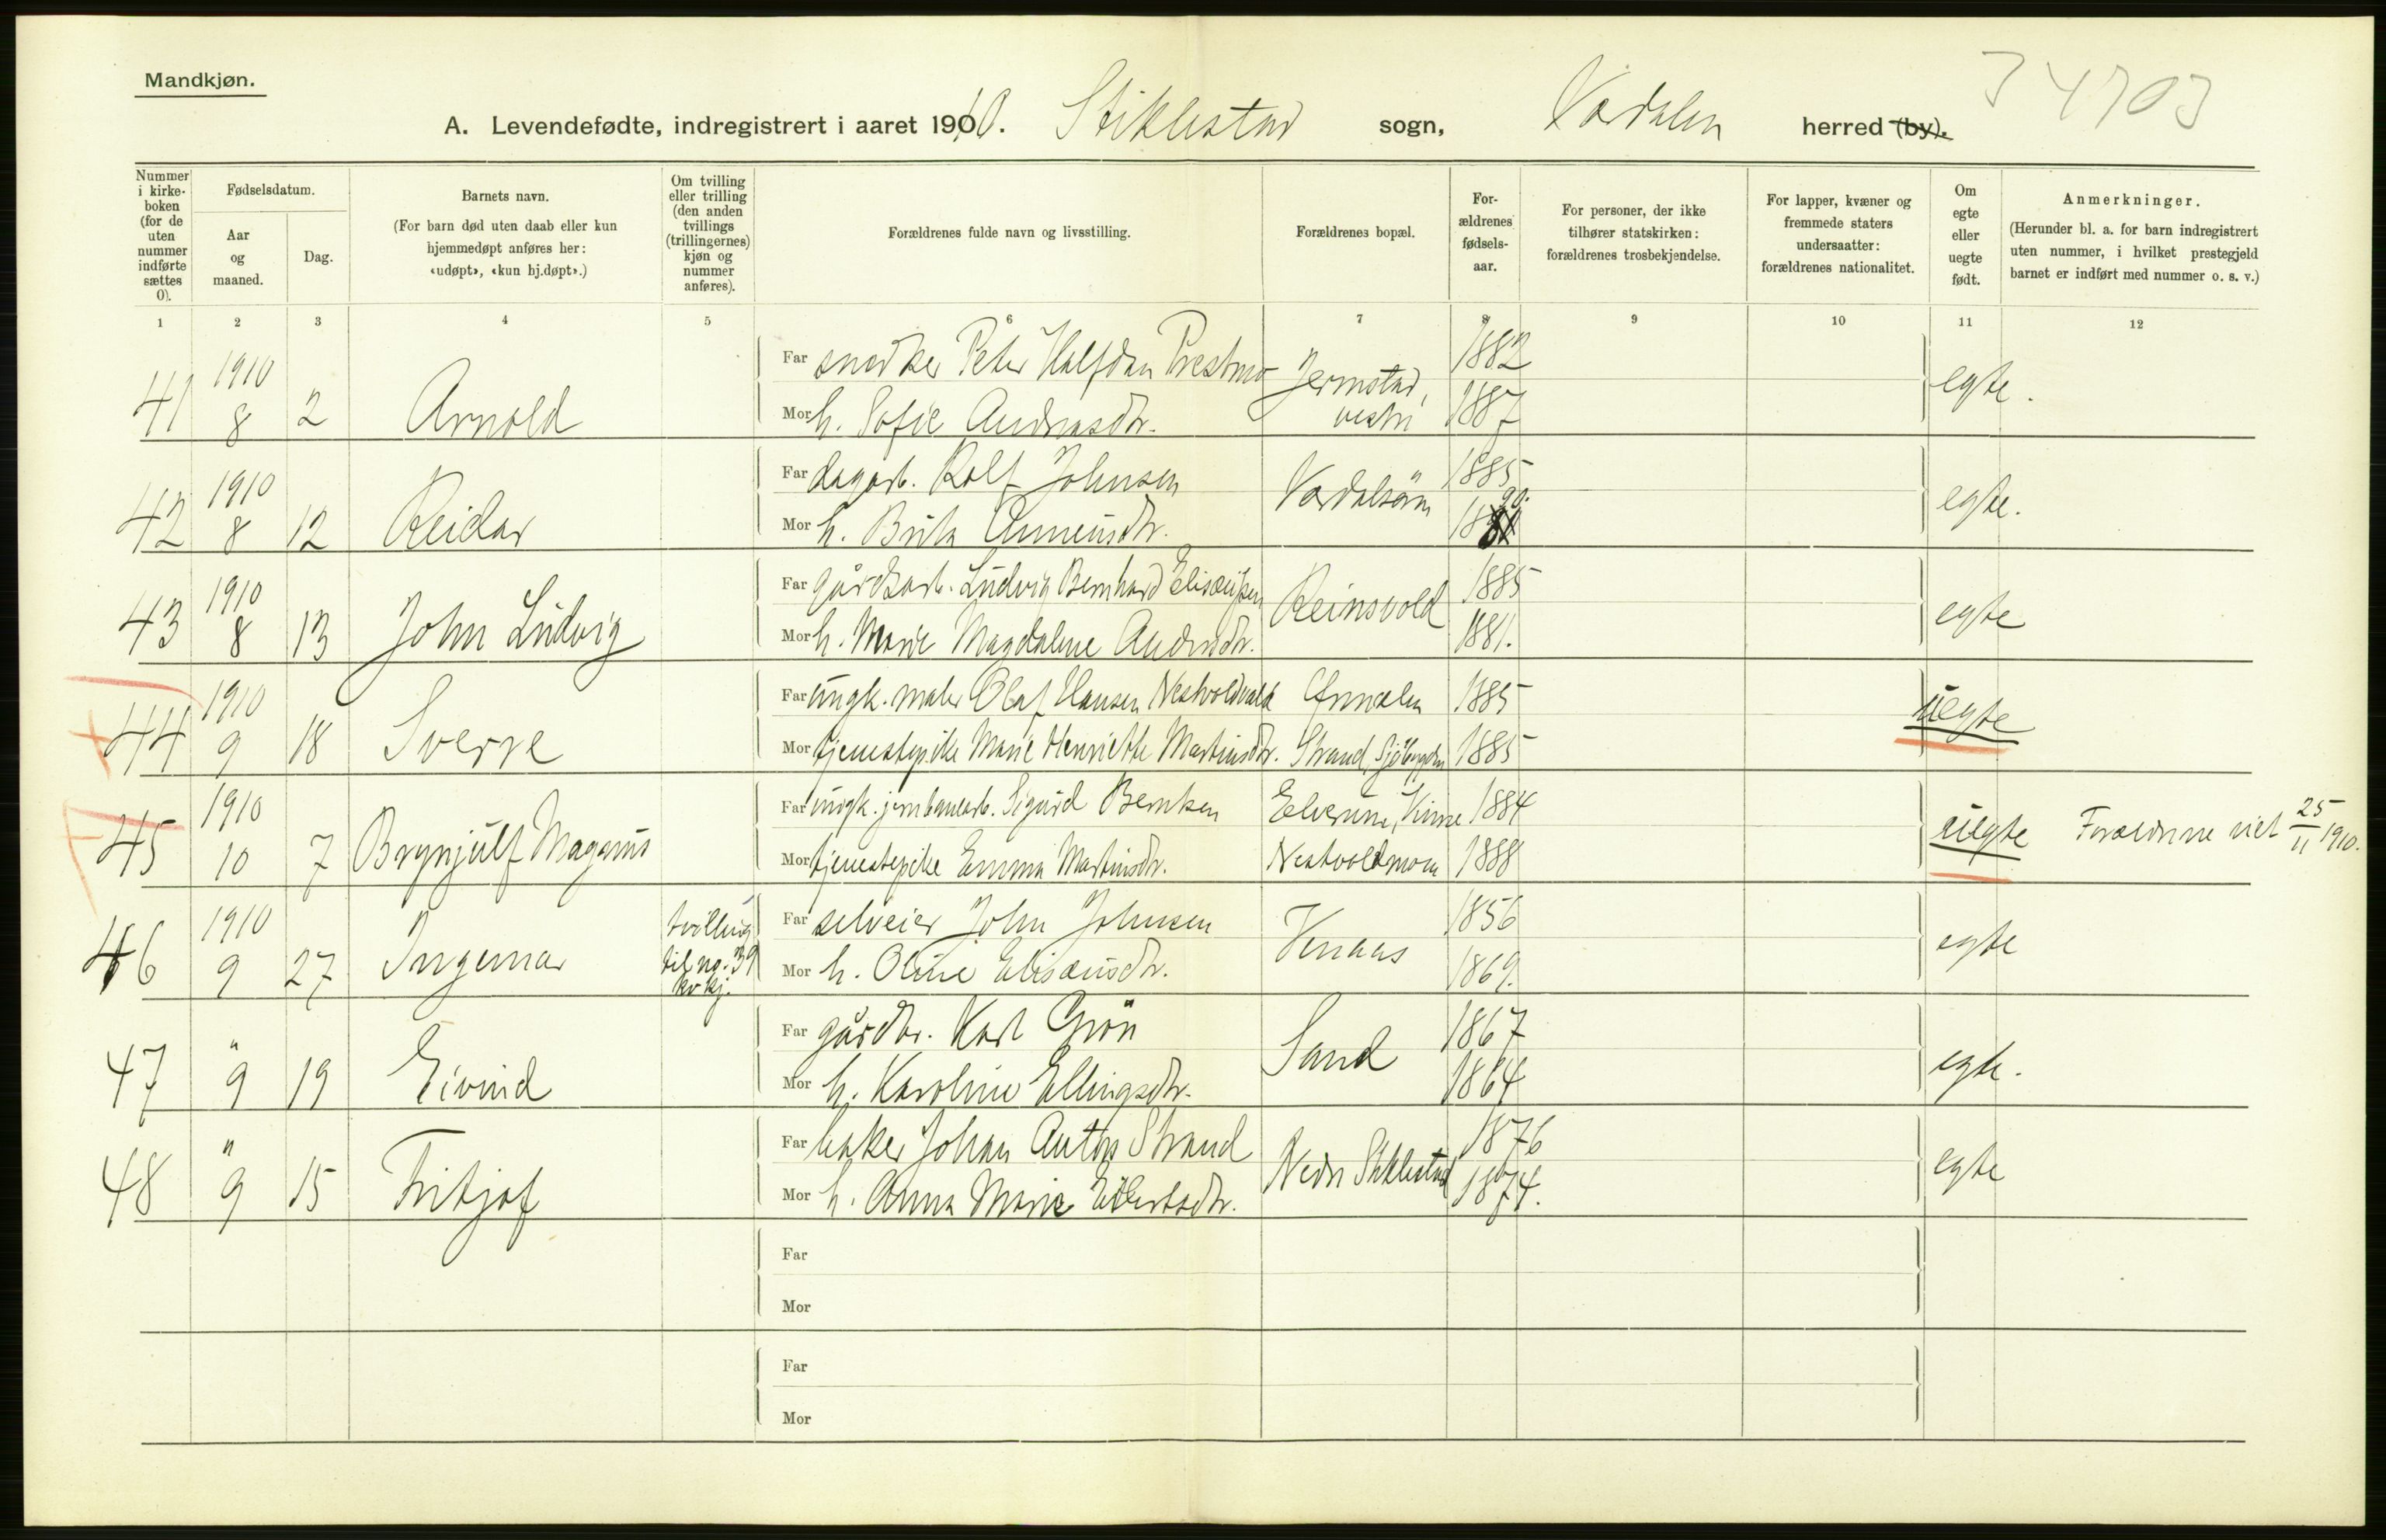 Mandkjøn.
34703
A. Levendefødte, indregistrert i aaret 1910. Stiklestad sogn, Værdalen herred (by).
Nummer i kirke-boken (for de uten nummer indførte sættes 0).
Fødselsdatum.
Aar og maaned.
Dag.
Barnets navn.
(For barn død uten daab eller kun hjemmedøpt anføres her: «udøpt», «kun hj.døpt».)
Om tvilling eller trilling (den anden tvillings (trillingernes) kjøn og nummer anføres).
Forældrenes fulde navn og livsstilling.
Forældrenes bopæl.
For-ældrenes fødsels-aar.
For personer, der ikke tilhører statskirken: forældrenes trosbekjendelse.
For lapper, kvæner og fremmede staters undersaatter: forældrenes nationalitet.
Om egte eller uegte født.
Anmerkninger.
(Herunder bl. a. for barn indregistrert uten nummer, i hvilket prestegjeld barnet er indført med nummer o. s. v.)
1 2 3 4 5 6 7 8 9 10 11 12
41 1910 8 2 Arnold
Far snedker Peter Halfdan Prestmo Jermstad, vestri 1882
Mor h. Sofie Andreasdtr. 1887
egte.
42 1910 8 12 Reidar
Far dagarb. Rolf Johnsen Værdalsøren 1885
Mor h. Brita 1890.
egte.
43 1910 8 13 John Ludvig
Far gårdsarb. Ludvig Bernhard Elisæussen Reinsvold 1885
Mor h. Marie Magdalene Andersdtr. 1881.
egte
44 1910 9 18 Sverre
Far ungk. maler Olaf Hansen 1885
Mor tjenestepike Marie Henriette Martinsdtr. Strand, Sjøbygden 1885
uegte
45 1910 10 7 Brynjulf Magnus
Far ungk. jernbanearb. Sigurd Berntsen 1884
Mor tjenestepike Emma Martinsdtr. Nestvoldmoen 1888
uegte Forældrene viet 25/11 1910.
46 1910 9 27 Ingemar tvilling til no. 39 kv kj.
Far selveier John Johnsen Venaas 1856
Mor h. Oline Elisæusdtr. 1869.
egte
47 " 9 19 Eivind
Far gårdbr. Karl Grøn Sand 1867
Mor h. Karoline Ellingsdtr. 1864
egte.
48 " 9 15 Fritjof
Far baker Johan Anton Strand Nedre Stiklestad 1876
Mor h. Anna Marie Eilertsdtr. 1874.
egte
Far
Mor
Far
Mor